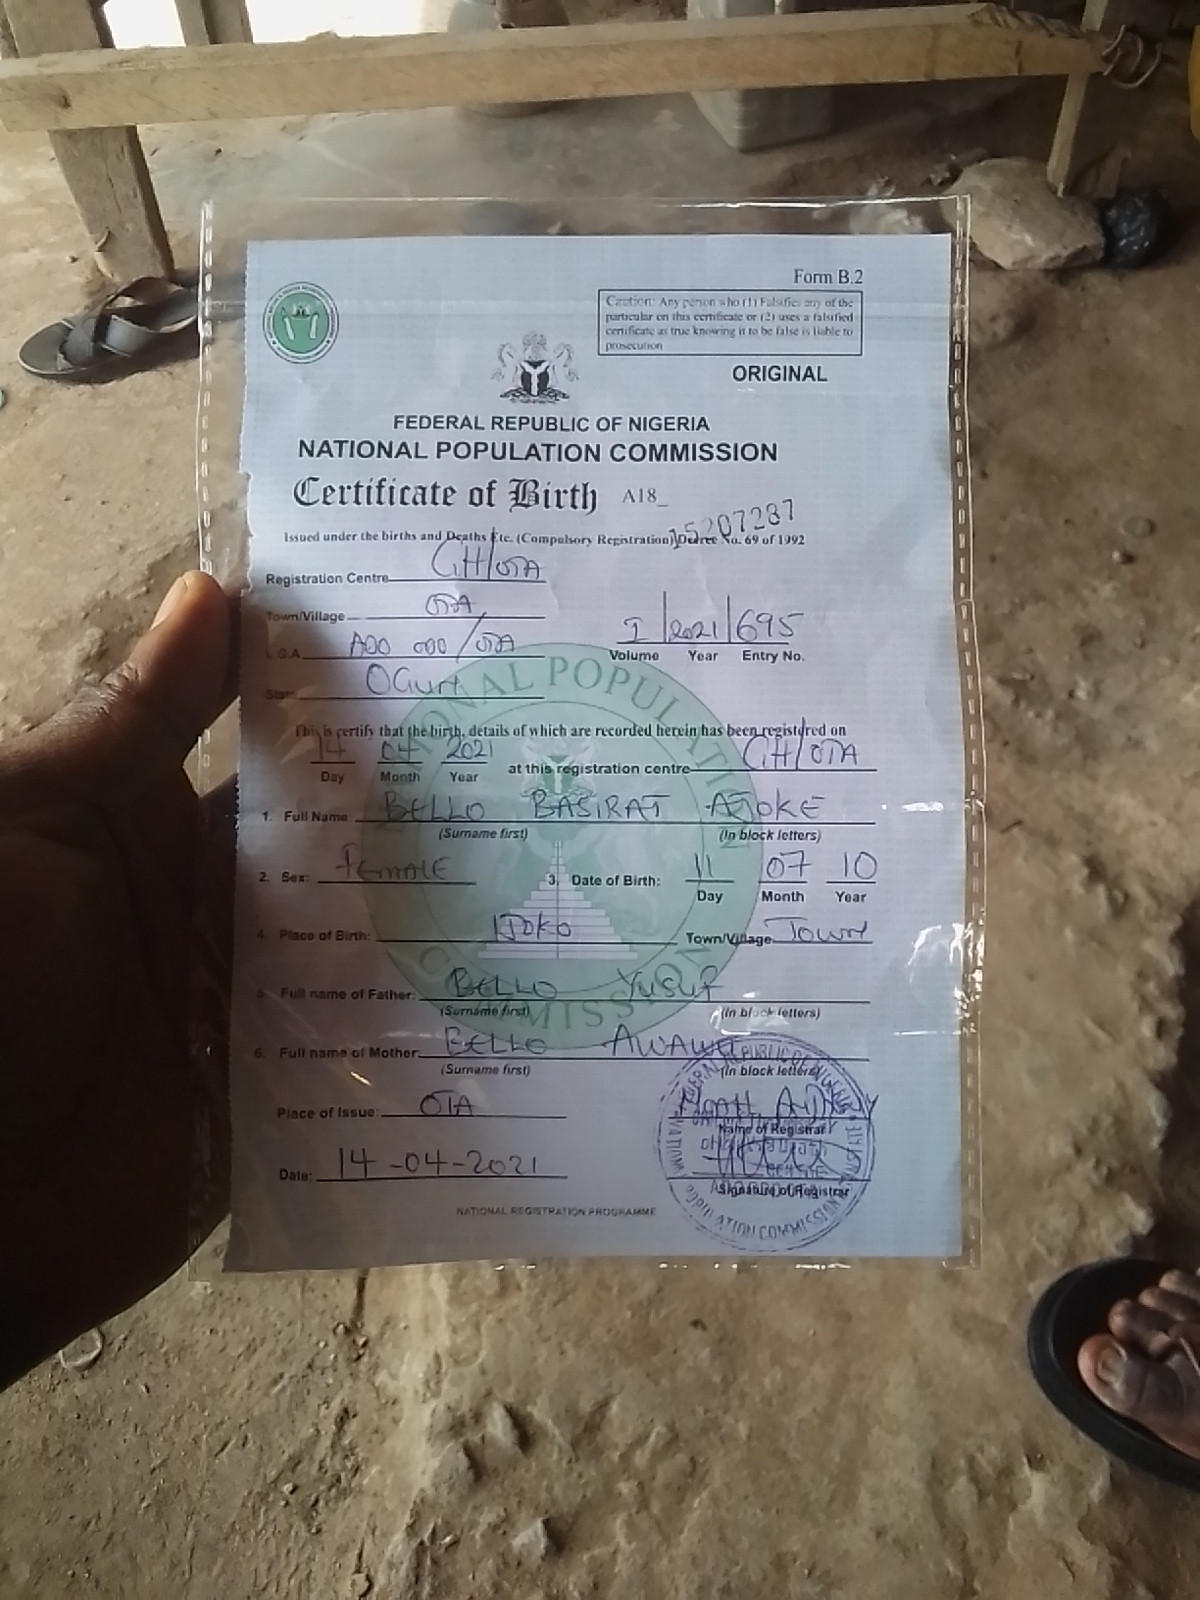 Form B.2
Caution: Any person who (1) Falsifies any of the
particular on this certificate or (2) uses a falsified
certificate as true knowing it to be false is liable to
prosecution
ORIGINAL
FEDERAL REPUBLIC OF NIGERIA
NATIONAL POPULATION COMMISSION
Certificate of Birth A18_
15207287
Issued under the births and Deaths Etc. (Compulsory Registration) Decree No. 69 of 1992
Registration Centre GH/OTA
Town/Village OTA
L.G.A ADO ODO/OTA
I/2021/695
Volume Year Entry No.
State OGUN
This is certify that the birth, details of which are recorded herein has been registered on
14 04 2021 at this registration centre GH/OTA
Day Month Year
1. Full Name BELLO BASIRAT AJOKE
(Surname first) (In block letters)
2. Sex: FEMALE 3. Date of Birth: 11 07 10
Day Month Year
4. Place of Birth: IJOKO Town/Village Town
5. Full name of Father: BELLO YUSUF
(Surname first) (In block letters)
6. Full name of Mother BELLO AWAWU
(Surname first) (In block letters)
Place of Issue: OTA
Name of Registrar
Date: 14-04-2021
Signature of Registrar
NATIONAL REGISTRATION PROGRAMME
NATIONAL POPULATION
COMMISSION
FEDERAL REPUBLIC OF NIGERIA
POPULATION COMMISSION